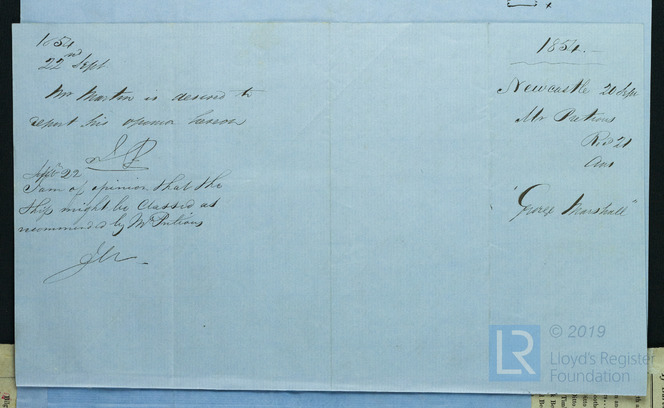 1854
22nd Sept
Mr Martin is desired to
report his opinion hereon
Sept 22
I am of opinion that the
Ship might be Classed as
recommended by Mr Putions
JM
1854.
Newcastle 20 Sept
Mr Putions
Rd 21
Ans
"George Marshall"
LR
© 2019
Lloyd's Register
Foundation